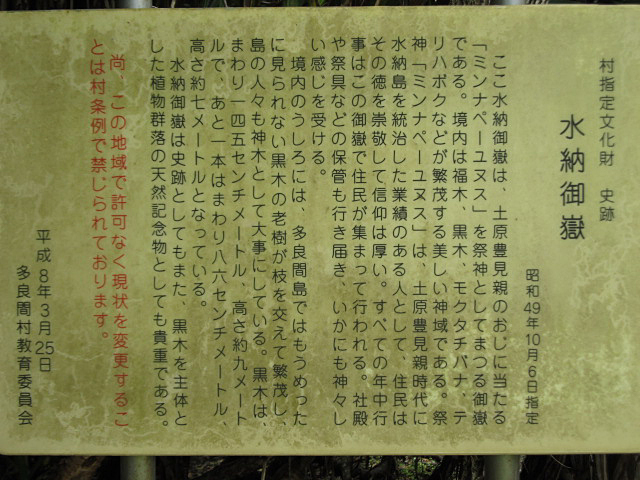 村指定文化財 史跡
水納御嶽
昭和49年10月6日指定
ここ水納御嶽は、土原豊見親のおじに当たる
「ミンナペーユヌス」を祭神としてまつる御嶽
である。境内は福木、黒木、モクタチバナ、テ
リハボクなどが繁茂する美しい神域である。祭
神「ミンナペーユヌス」は、土原豊見親時代に
水納島を統治した業績のある人として、住民は
その徳を崇敬して信仰は厚い。すべての年中行
事はこの御嶽で住民が集まって行われる。社殿
や祭具などの保管も行き届き、いかにも神々し
い感じを受ける。
境内のうしろには、多良間島ではもうめった
に見られない黒木の老樹が枝を交えて繁茂し、
島の人々も神木として大事にしている。黒木は、
まわり一四五センチメートル、高さ約九メート
ルで、あと一本はまわり八六センチメートル、
高さ約七メートルとなっている。
水納御嶽は史跡としてもまた、黒木を主体と
した植物群落の天然記念物としても貴重である。
尚、この地域で許可なく現状を変更するこ
とは村条例で禁じられております。
平成8年3月25日
多良間村教育委員会